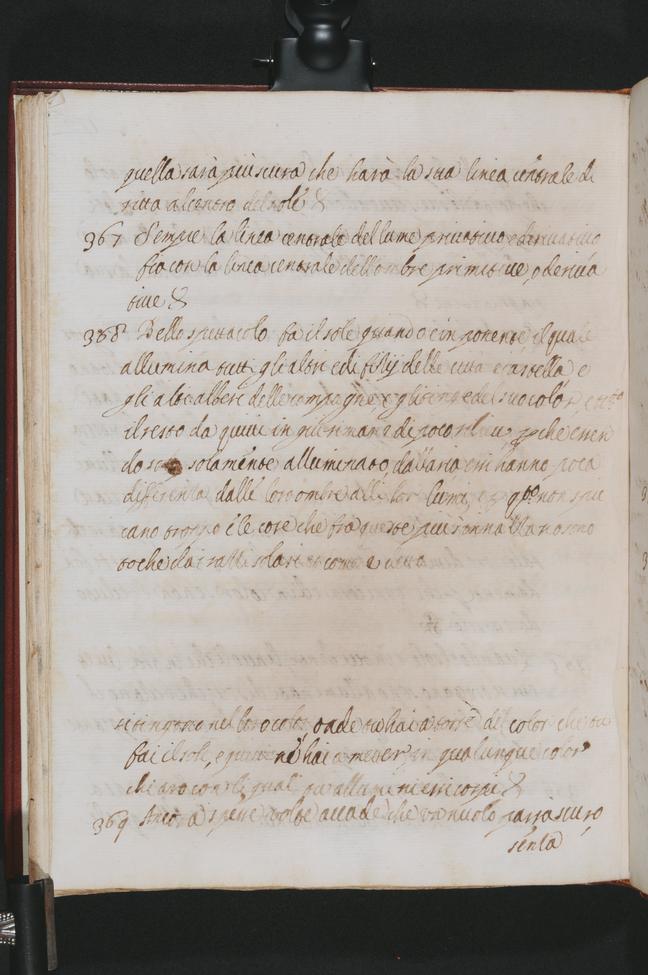 quella sarà piu scura che harà la sua linea centrale di
ritta al centro del sole
367 Sempre la linea centrale del lume primitivo e derivativo
fia con la linea centrale dell ombre primitive, o deriva
tive
368 Dello spettacolo fa il sole quando è in ponente, il quale
allumina tutti gli altri edifitij delle citta e castella e
gli alti alberi delle campagne e gli tinge del suo colore e tutto
il resto da quivi in giu rimane di poco rilievo, perche essen
do solamente alluminato dall'aria, essi hanno poca
differentia dalle loro ombre alli lor lumi, e per questo non spic
cano troppo e le cose che fra queste piu s'innalzano sono
toche dai razzi solari et come è detto
si tingono nel loro color, onde tu hai a torre del color che tu
fai il sole, e quivi ne hai a metter in qualunque color
chiaro con li quali tu allumini essi corpi
369 Ancora spesse volte accade che un nuvolo parra scuro
senza